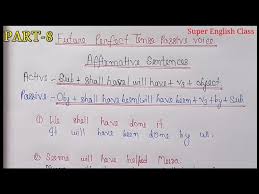 PART-8
Super English Class
Future Perfect Tense Passive voice
Affarmative Sentences
Active - Sub + shall have/will have + v₃ + object
Passive - Obj + shall have been/will have been + v₃ + by + Sub
① We shall have done it.
It will have been done by us.
② Seema will have helped Meera.